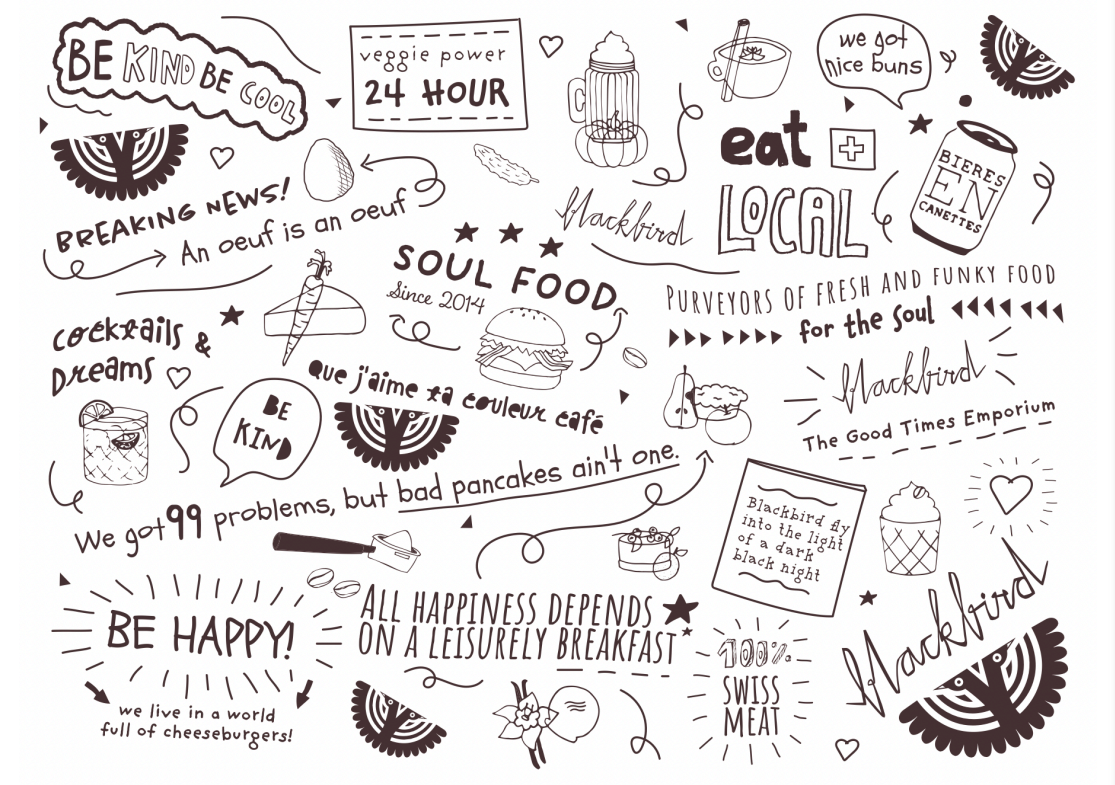 BE KIND BE COOL
veggie power
24 HOUR
we got
nice buns
eat
LOCAL
BIERES
EN
CANETTES
BREAKING NEWS!
An oeuf is an oeuf
blackbird
SOUL FOOD
Since 2014
PURVEYORS OF FRESH AND FUNKY FOOD
for the soul
cocktails &
Dreams
BE
KIND
que j'aime ta couleur café
blackbird
The Good Times Emporium
We got 99 problems, but bad pancakes ain't one.
Blackbird fly
into the light
of a dark
black night
BE HAPPY!
we live in a world
full of cheeseburgers!
ALL HAPPINESS DEPENDS
ON A LEISURELY BREAKFAST
100%
SWISS
MEAT
blackbird